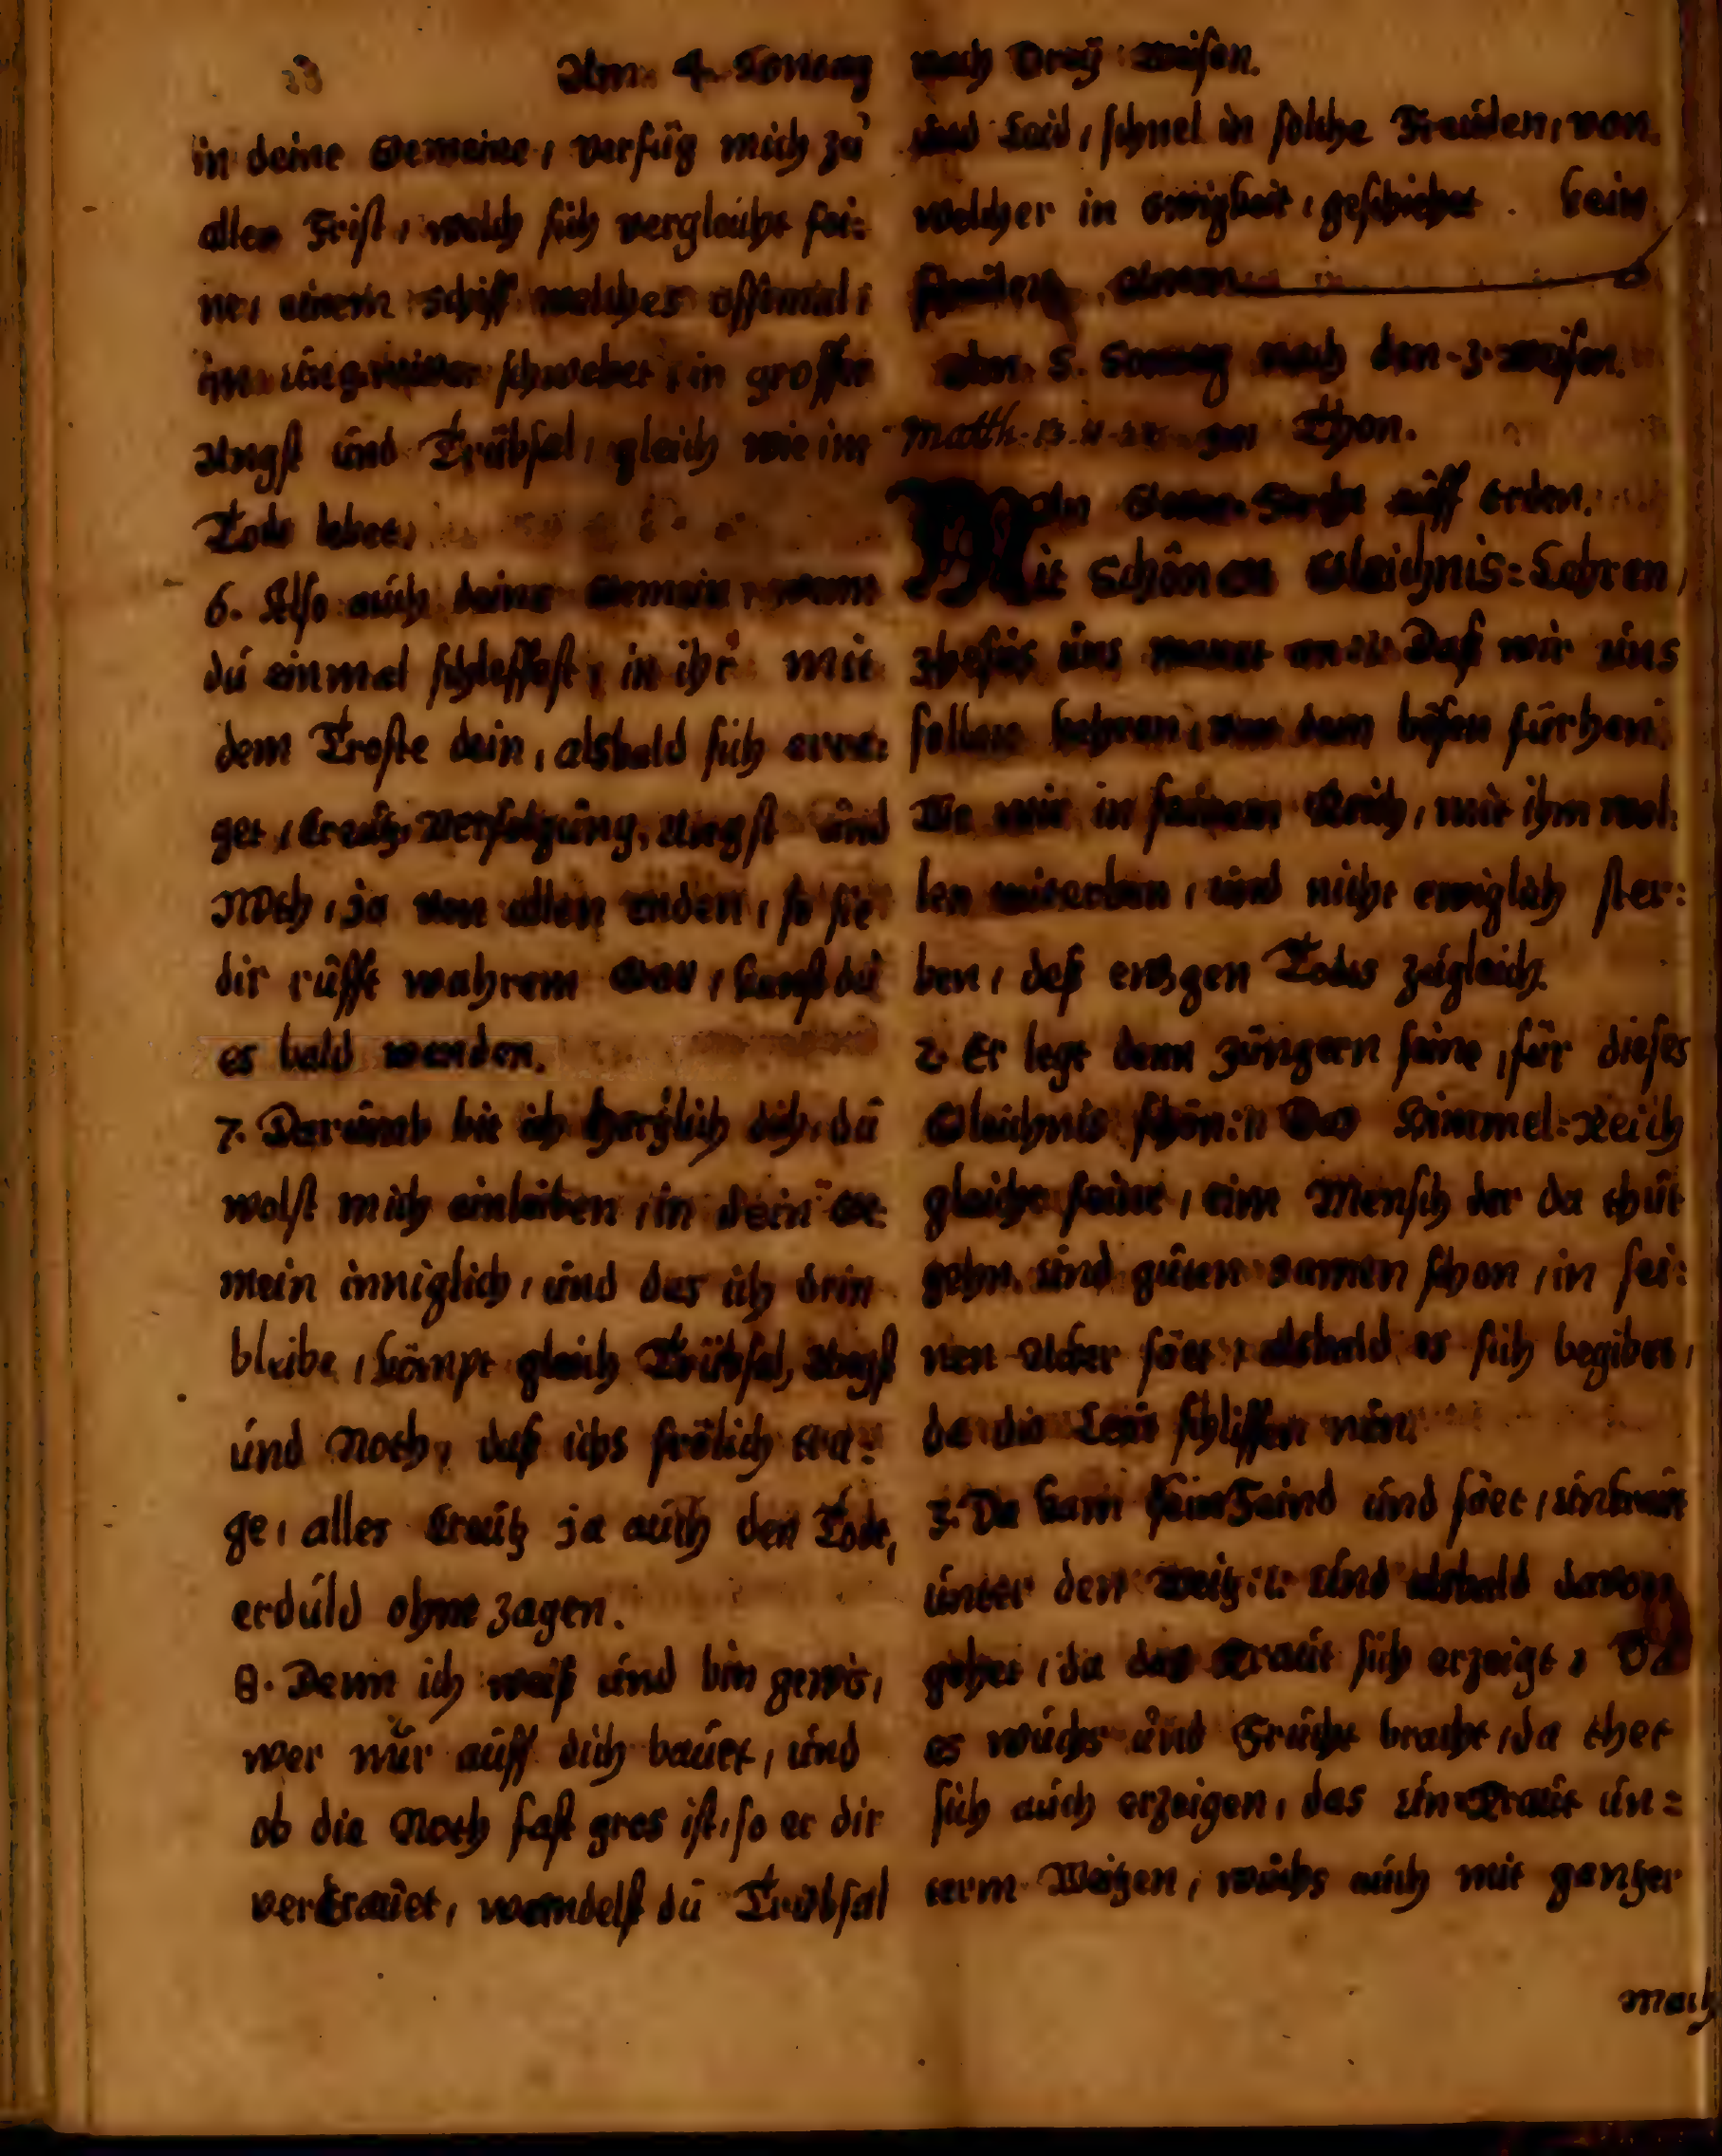 33 Am 4. Sontag nach Dreÿ Weisen.
in deine Gemeine, verfüg mich zu
aller Frist, welch sich vergleicht fei:
ne, einem Schiff welches offtmal,
im ungewitter schwebet, in grosser
Angst und Trübsal, gleich wie im
Tode lebet.
6. Also auch deine Gemein, wann
du einmal schleffest, in ihr mit
dem Troste dein, alsbald sich erre:
get, Creutz, Verfolgung, Angst und
Noth, ja von allen enden, so sie
dir rüfft wahrem Gott, kanst du
es bald wenden.
7. Darumb bit ich hertzlich dich, du
wolst mich einleiben, in dein Ge:
mein inniglich, und das ich drin
bleibe, kömpt gleich Trübsal, Angst
und Noth, daß ichs frölich tra:
ge, alles Creutz ja auch den Tode,
erduld ohne zagen.
8. Denn ich weiß und bin gewis,
wer nur auff dich bauet, und
ob die Noth fast gros ist, so er dir
vertrauet, wandelst du Trübsal
und Laid, schnel in solche Freuden, von
welcher in ewigkeit, geschiehet kein
scheiden, Amen
Am. 5. Sontag nach den 3. Weisen.
Matth. 13. im Thon.
auff Erden.
Mit Schönen Gleichnis=Lehren,
Jhesus uns manet an :: Daß wir uns
sollen kehren, von dem bösen fürhan,
Wo wir in seinem Reich, mit ihm wol:
len miterben, und nicht ewiglich ster:
ben, deß ewgen Todes zugleich.
2. Er legt denn Jüngern seine, für dieses
Gleichnis schön :: Das Himmel=Reich
gleicht feine, eim Mensch der da thut
gehn. und guten Samen schon, in sei:
nen Acker säet, alsbald es sich begibet,
da die Leut schliffen nun.
3. Da kam sein Feind und säet, unkraut
unter den Weitz :: Und alsbald davon
gehet, da das Kraut sich erzeigt, Da
es wuchs und Frücht bracht, da thet
sich auch erzeigen, das Un=Kraut un=
term Weitzen, wuchs auch mit gantzer
Mach